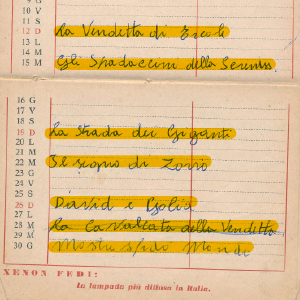 9 M
10 V
11 S
12 D La Vendetta di Ercole
13 L
14 M
15 M Gli Spadaccini della Sereniss.
16 G
17 V
18 S
19 D La Strada dei Giganti
20 L
21 M
22 M Il segno di Zorro
23 G
24 V
25 S
26 D David e Golia
27 L
28 M La Cavalcata della Vendetta
29 M
30 G Mostri
XENON FEDI:
la lampada più diffusa in Italia.